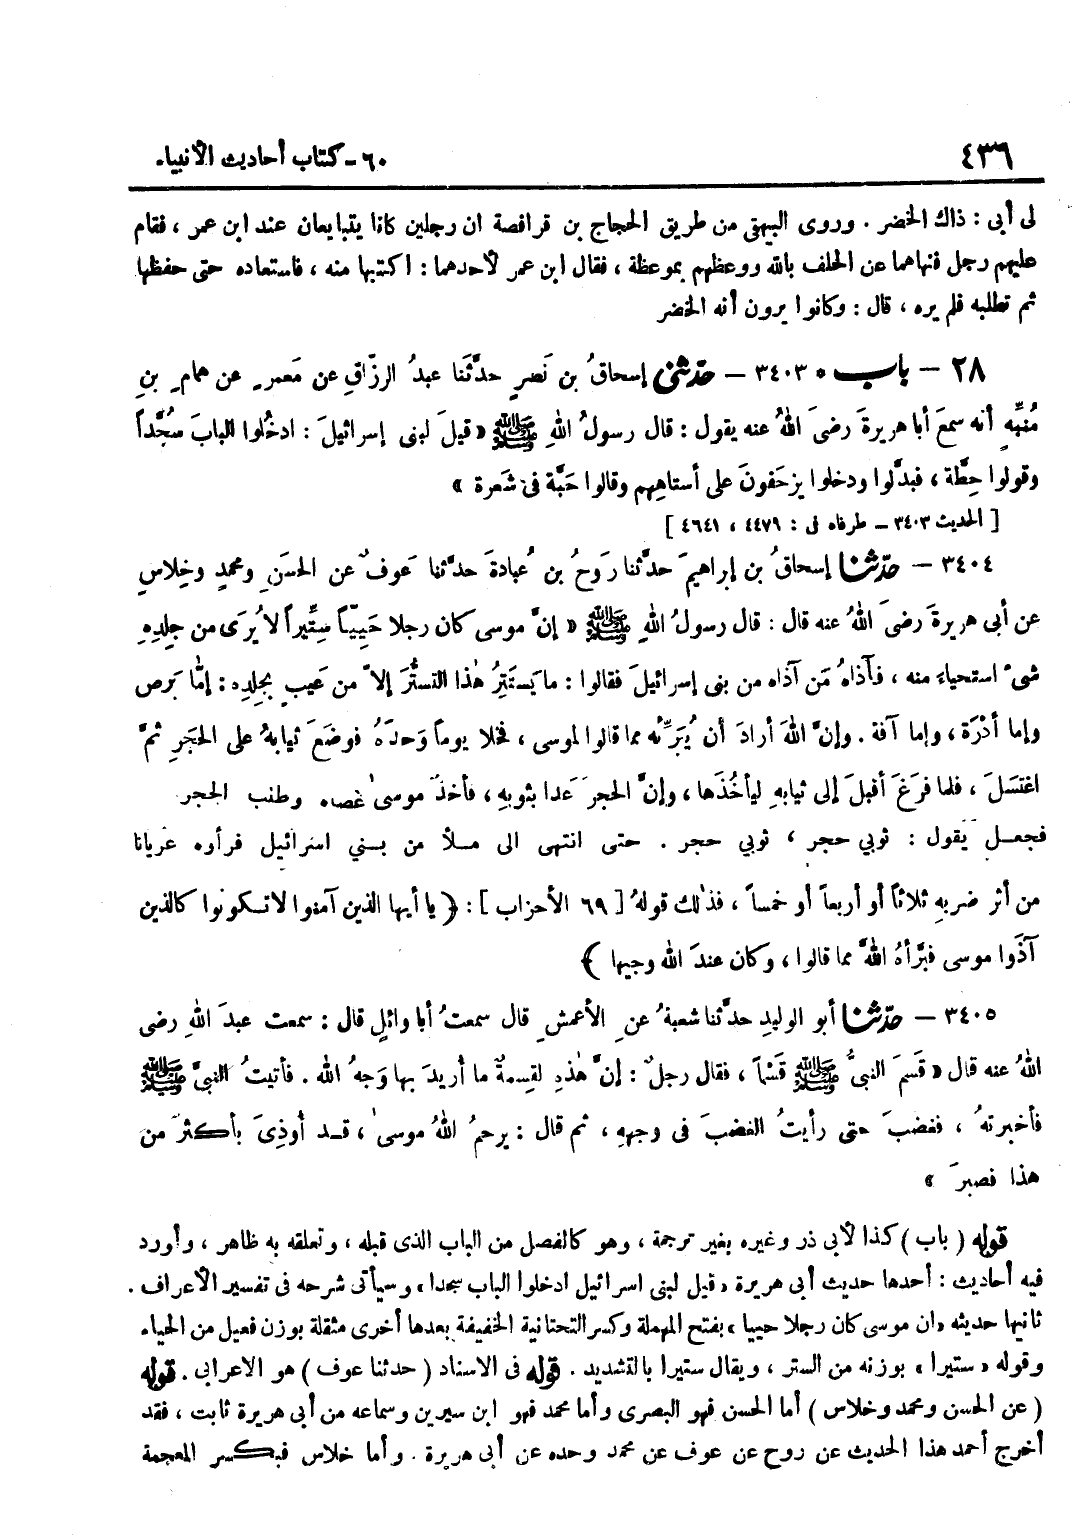 ٤٣٦
٦٠-كتاب أحاديث الأنبياء
لى أبى : ذاك الخضر . وروى البيهقى من طريق الحجاج بن قرافصة ان رجلين كانا يتبايعان عند ابن عمر ، فقام
عليهم رجل فنهاهما عن الحلف بالله ووعظهم بموعظة ، فقال ابن عمر لأحدهما : اكتبها منه ، فاستعاده حتى حفظها
ثم تطلبه فلم يره ، قال : وكانوا يرون أنه الخضر
٢٨ – باب ٥ ٣٤٠٣ – حدّثنى إسحاقُ بن نَصرٍ حدَّثنا عبدُ الرزّاقِ عن مَعمرٍ عن همامِ بنِ
مُنبِّهٍ أنه سمعَ أبا هريرةَ رضىَ اللهُ عنه يقول : قال رسولُ اللهِ ﷺ « قيلَ لبنى إسرائيلَ : ادخُلوا البابَ سُجَّداً
وقولوا حِطَّة ، فبدَّلوا ودخلوا يزحَفونَ على أستاهِهم وقالوا حَبَّة فى شَعرة »
[ الحديث ٣٤٠٣ – طرفاه فى : ٤٤٧٩ ، ٤٦٤١ ]
٣٤٠٤ – حدّثنا إسحاقُ بن إبراهيمَ حدَّثنا رَوحُ بن عُبادةَ حدثنا عَوفٌ عن الحسَنِ ومحمدٍ وخِلاسٍ
عن أبى هريرةَ رضىَ اللهُ عنه قال : قال رسولُ اللهِ ﷺ « إنَّ موسى كان رجلا حَيِيّاً سِتِّيراً لا يُرَى من جِلدِهِ
شىءٌ استحياءَ منه ، فآذاهُ مَن آذاه من بنى إسرائيلَ فقالوا : ما يَستَتِرُ هٰذا التستُّرَ إلاّ من عَيبٍ بجِلدِه : إمَّا بَرص
وإما أدْرَة ، وإما آفة . وإنَّ اللهَ أرادَ أن يُبَرِّئه مما قالوا لموسى ، فخلا يوماً وَحدَهُ فوضَعَ ثيابهُ على الحجَرِ ثمَّ
اغتسَلَ ، فلما فرَغَ أقبلَ إلى ثيابهِ ليأخُذَها ، وإنَّ الحجرَ عَدا بثوبهِ ، فأخذَ موسىٰ عَصاه وطلب الحجر
فجعل يَقول : ثوبي حجر ، ثوبي حجر . حتى انتهى الى ملأ من بني اسرائيل فرأوه عريانا
من أثر ضربهِ ثلاثاً أو أربعاً أو خمساً ، فذٰلك قولهُ [ ٦٩ الأحزاب ] : ﴿ يا أيها الذين آمنوا لا تكونوا كالذين
آذَوا موسى فبرَّأهُ اللهُ مما قالوا ، وكان عندَ اللهِ وجيها ﴾
٣٤٠٥ – حدّثنا أبو الوليدِ حدَّثنا شعبةُ عنِ الأعمشِ قال سمعتُ أبا وائلٍ قال : سمعت عبدَ اللهِ رضى
اللهُ عنه قال « قَسمَ النبىُّ ﷺ قَسْماً ، فقال رجلٌ : إنَّ هٰذهِ لقِسمةٌ ما أُريدَ بها وَجهُ الله . فأتيتُ النبىَّ ﷺ
فأخبرتهُ ، فغضبَ حتى رأيتُ الغضبَ فى وجههِ ، ثم قال : يرحمُ اللهُ موسىٰ ، قـد أُوذِىَ بأكثرَ من
هذا فصبرَ »
قوله ( باب ) كذا لأبى ذر وغيره بغير ترجمة ، وهو كالفصل من الباب الذى قبله ، وتعلقه به ظاهر ، وأورد
فيه أحاديث : أحدها حديث أبى هريرة « قيل لبنى اسرائيل ادخلوا الباب سجدا » وسيأتى شرحه فى تفسير الأعراف .
ثانيها حديثه « ان موسى كان رجلا حييا » بفتح المهملة وكسر التحتانية الخفيفة بعدها أخرى مثقلة بوزن فعيل من الحياء
وقوله « ستيرا » بوزنه من الستر ، ويقال ستيرا بالتشديد . قوله فى الاسناد ( حدثنا عوف ) هو الاعرابى . قوله
( عن الحسن ومحمد وخلاس ) أما الحسن فهو البصرى وأما محمد فهو ابن سيرين وسماعه من أبى هريرة ثابت ، فقد
أخرج أحمد هذا الحديث عن روح عن عوف عن محمد وحده عن أبى هريرة . وأما خلاس فبكسر المعجمة